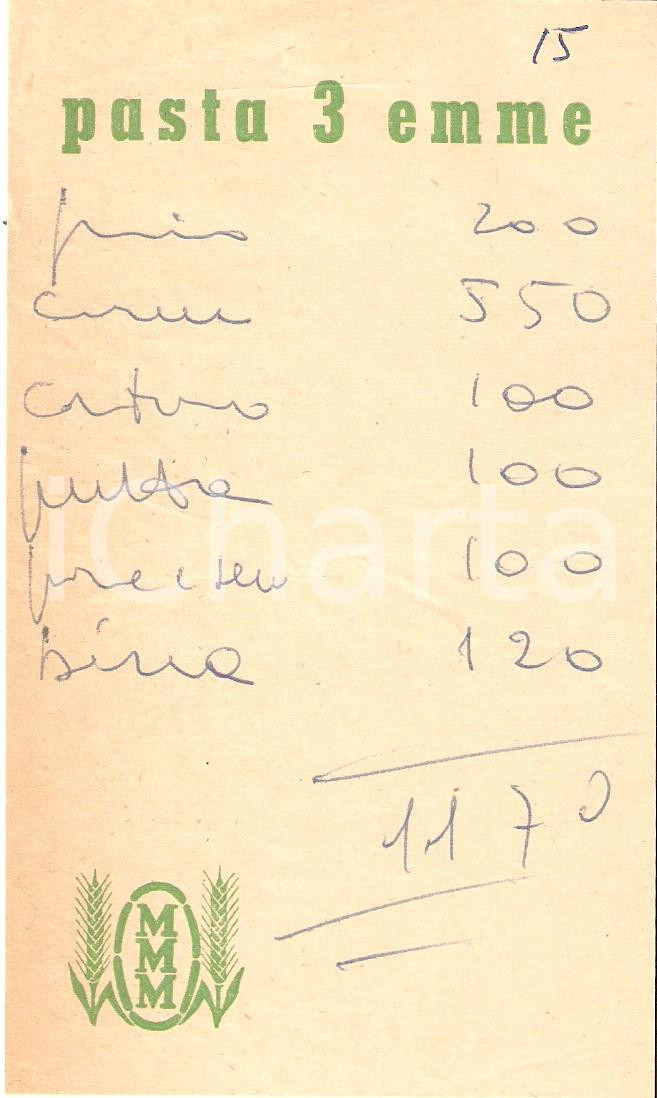 15
pasta 3 emme
primo 200
carne 550
contorno 100
frutta 100
100
birra 120
1170
iCharta
M
M
M